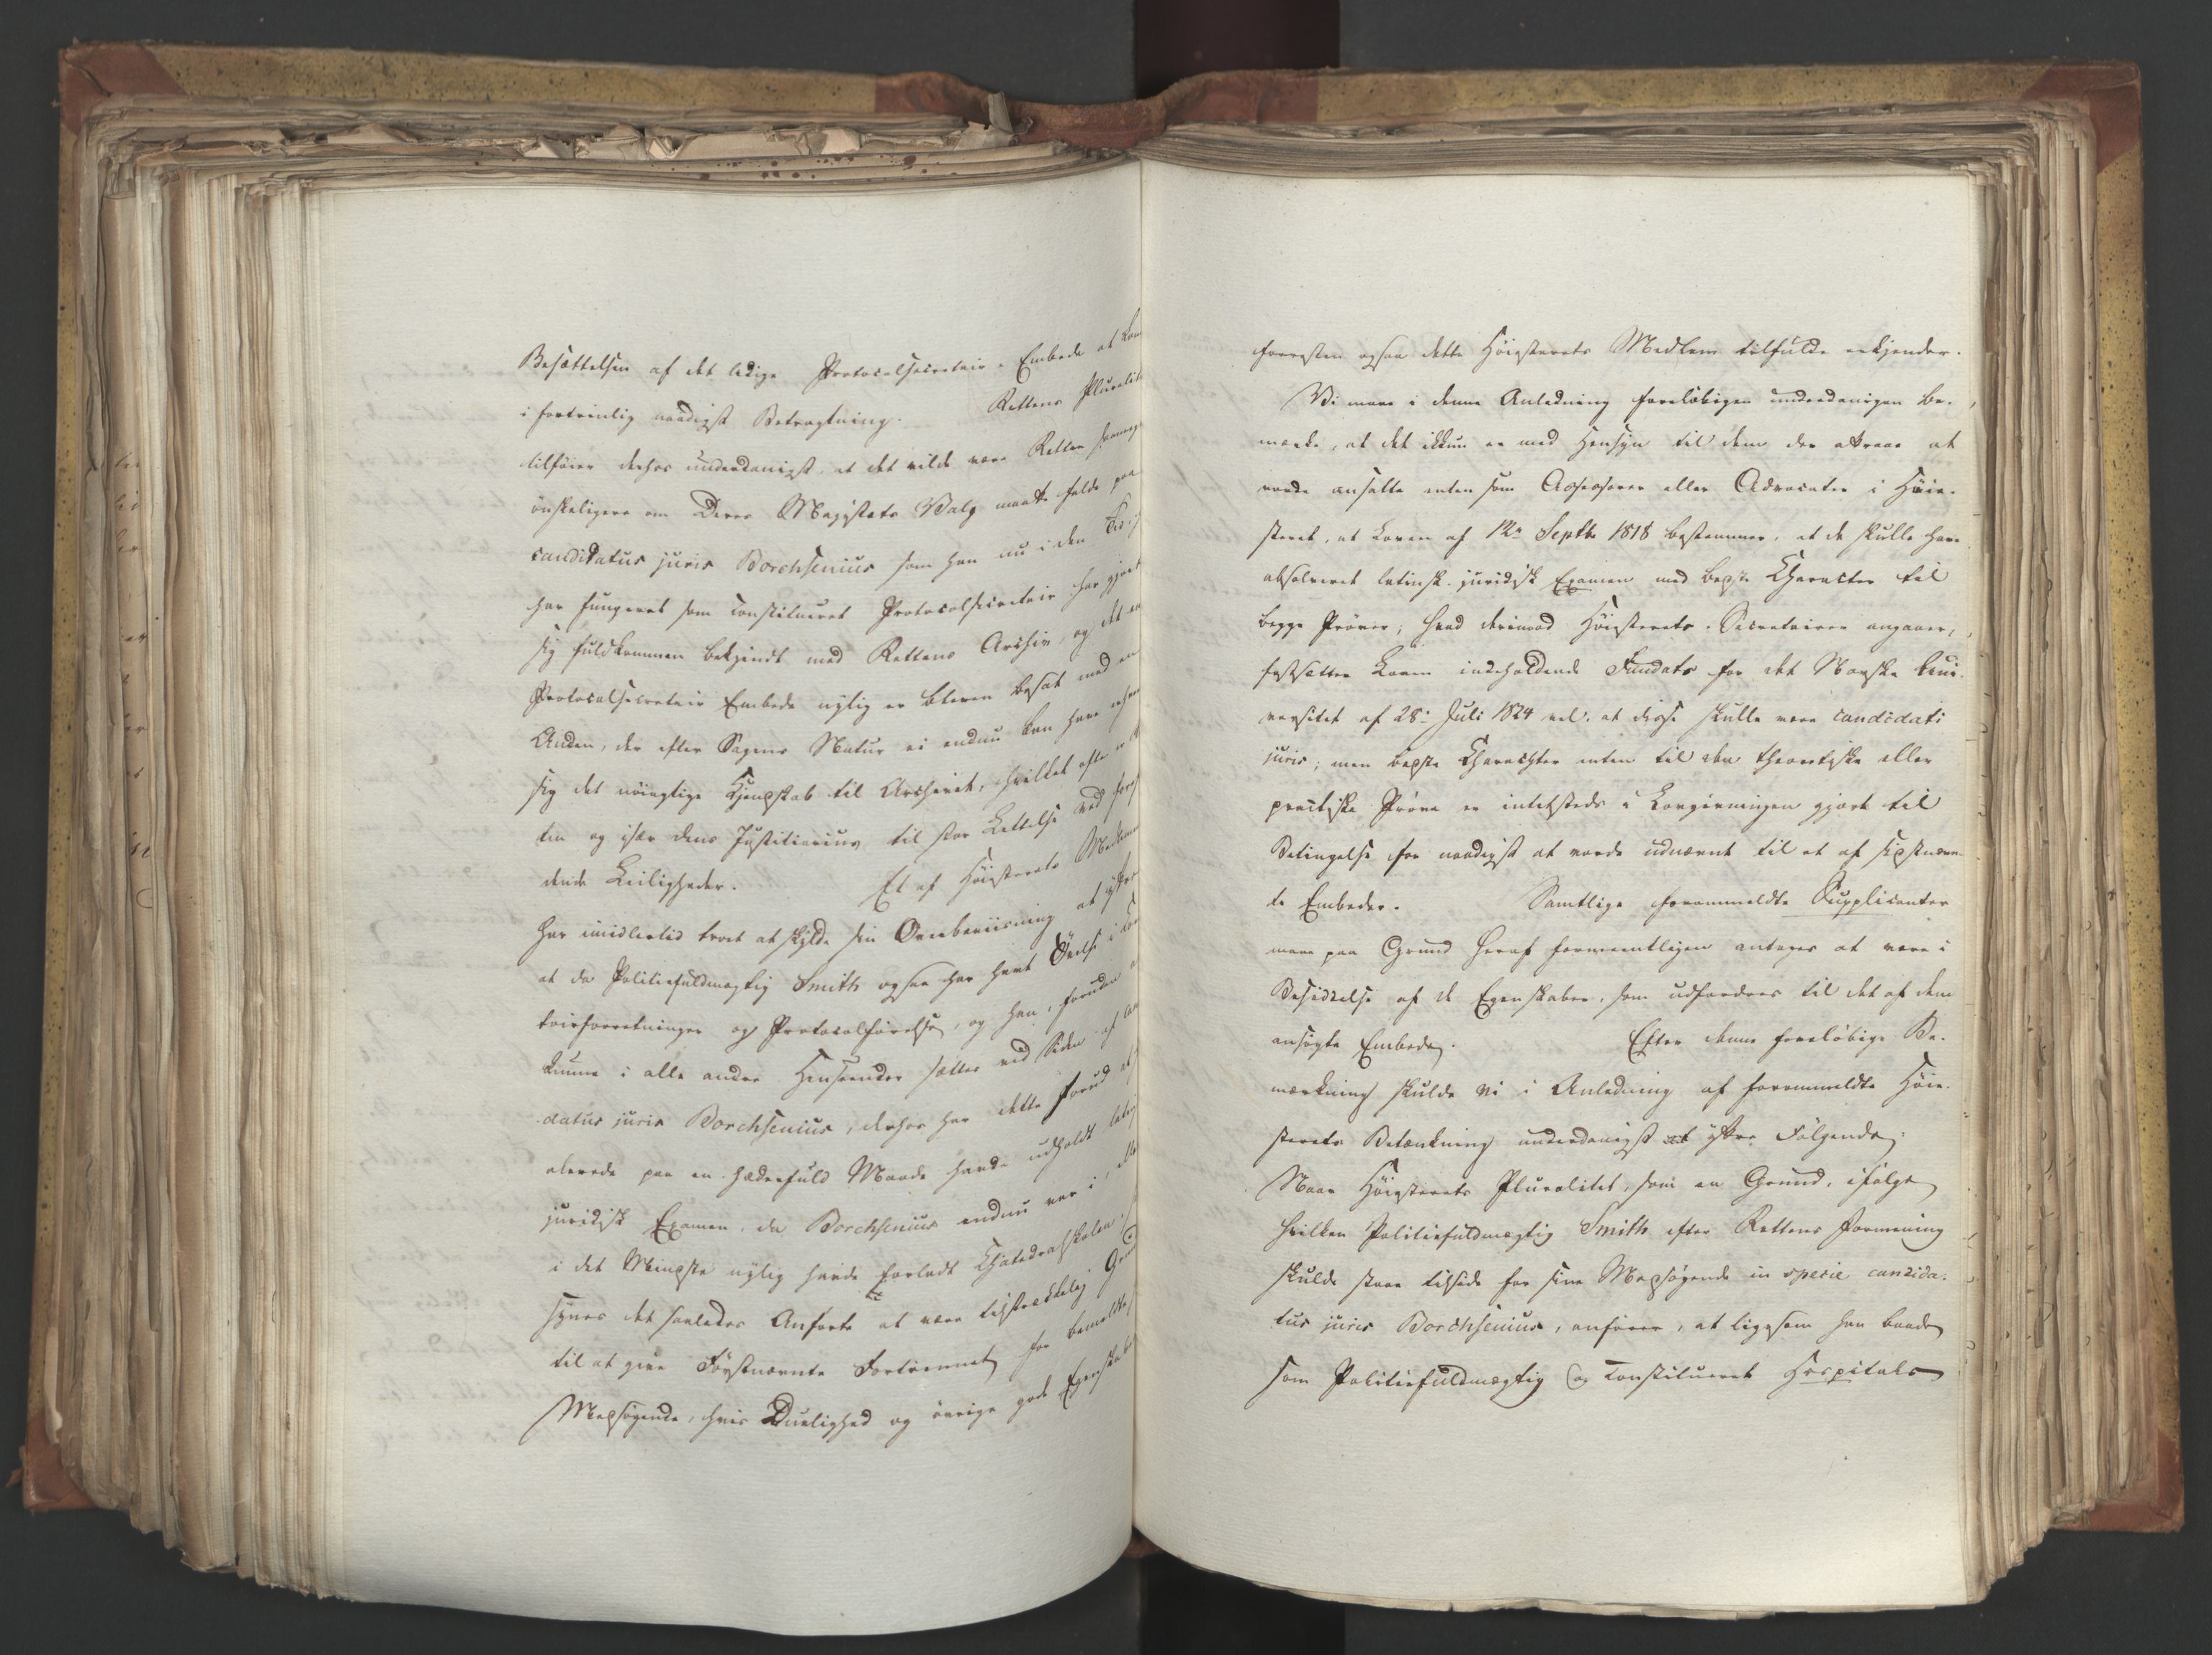 Besættelsen af det ledige Protocolsecretair-Embede at kom
i fortrinlig naadigst Betragtning. Rettens Pluralite
tilføier derhos underdanigst, at det vilde være Retten saameget
ønskeligere om Deres Majestæts Valg maatte falde paa
candidatus juris Borchsenius som han nu i den Tid,
har fungeret som constitueret Protocolsecretair har gjort
sig fuldkommen bekjendt med Rettens Archiv, og det an
Protocolsecretair Embede nylig er bleven besat med en
Anden, der efter Sagens Natur ei endnu kan have erhver
sig det nøiagtige Kjendskab til Archivet, hvilket ofte er
ten og især dens Justitiarius til stor Lettelse ved fore
dende Leiligheder. Et af Høiesterets Medlemmer
har imidlertid troet at skylde sin Overbeviisning at yttre
at da Politiefuldmægtig Smith ogsaa har havt Øvelse i
toirforretninger og Protocolførelse, og han, foruden
kunne i alle andre Henseender sættes ved Siden af can
datus juris Borchsenius, derhos har dette forud at
allerede paa en hæderfuld Maade havde udholdt latin
juridisk Examen, da Borchsenius endnu var i, eller
i det Mindste nylig havde forladt Chatedralskolen,
synes det saaledes Anførte at være tilstrækkelig Grund
til at give Førstnævnte Fortrinnet for bemeldte
Medsøgende, hvis Duelighed og øvrige gode Egenskaber
forresten ogsaa dette Høiesterets Medlem tilfulde erkjender.
Vi maae i denne Anledning foreløbigen underdanigen be-
mærke, at det ikkun er med Hensyn til dem der attraae at
vorde ansatte enten som Assessorer eller Advocater i Høie-
steret, at Loven af 12te Septbr 1818 bestemmer, at de skulle have
absolveret latinsk-juridisk Examen med bedste Character til
begge Prøver; hvad derimod Høiesterets-Secretairer angaaer,
fastsætter Loven indeholdende Fundats for det Norske Uni-
versitet af 28de Juli 1824 vel, at disse skulle være candidati
juris; men bedste Charachter enten til den theoretiske eller
practiske Prøve er intetsteds i Lovgivningen gjort til
Betingelse for naadigst at vorde udnævnt til et af sidstnævn-
te Embeder. Samtlige foranmeldte Supplicanter
maae paa Grund heraf formeentligen antages at være i
Besiddelse af de Egenskaber, som udfordres til det af dem
ansøgte Embede. Efter denne foreløbige Be-
mærkning skulde vi i Anledning af foranmeldte Høie-
sterets Betænkning underdanigst yttre Følgende:
Naar Høiesterets Pluralitet, som en Grund, ifølge
hvilken Politiefuldmægtig Smith efter Rettens Formening
skulde staae tilside for sine Medsøgende in specie candida-
tus juris Borchsenius, anfører, at ligesom han baade
som Politiefuldmægtig og constitueret Hospitals